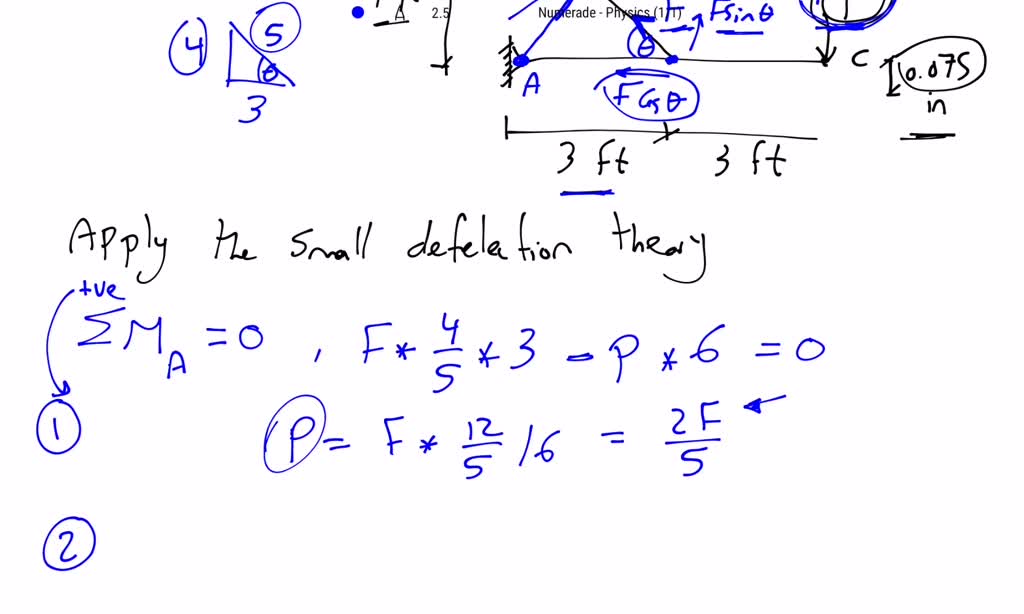 Numerade - Physics (1/1)
2.5
A
F
F sin θ
4
5
θ
3
θ
A
F cos θ
C
0.075
in
3 ft
3 ft
Apply the small defelction theory
+ve
ΣM_A = 0 , F * 4/5 * 3 - P * 6 = 0
1
P = F * 12/5 / 6 = 2F/5
2